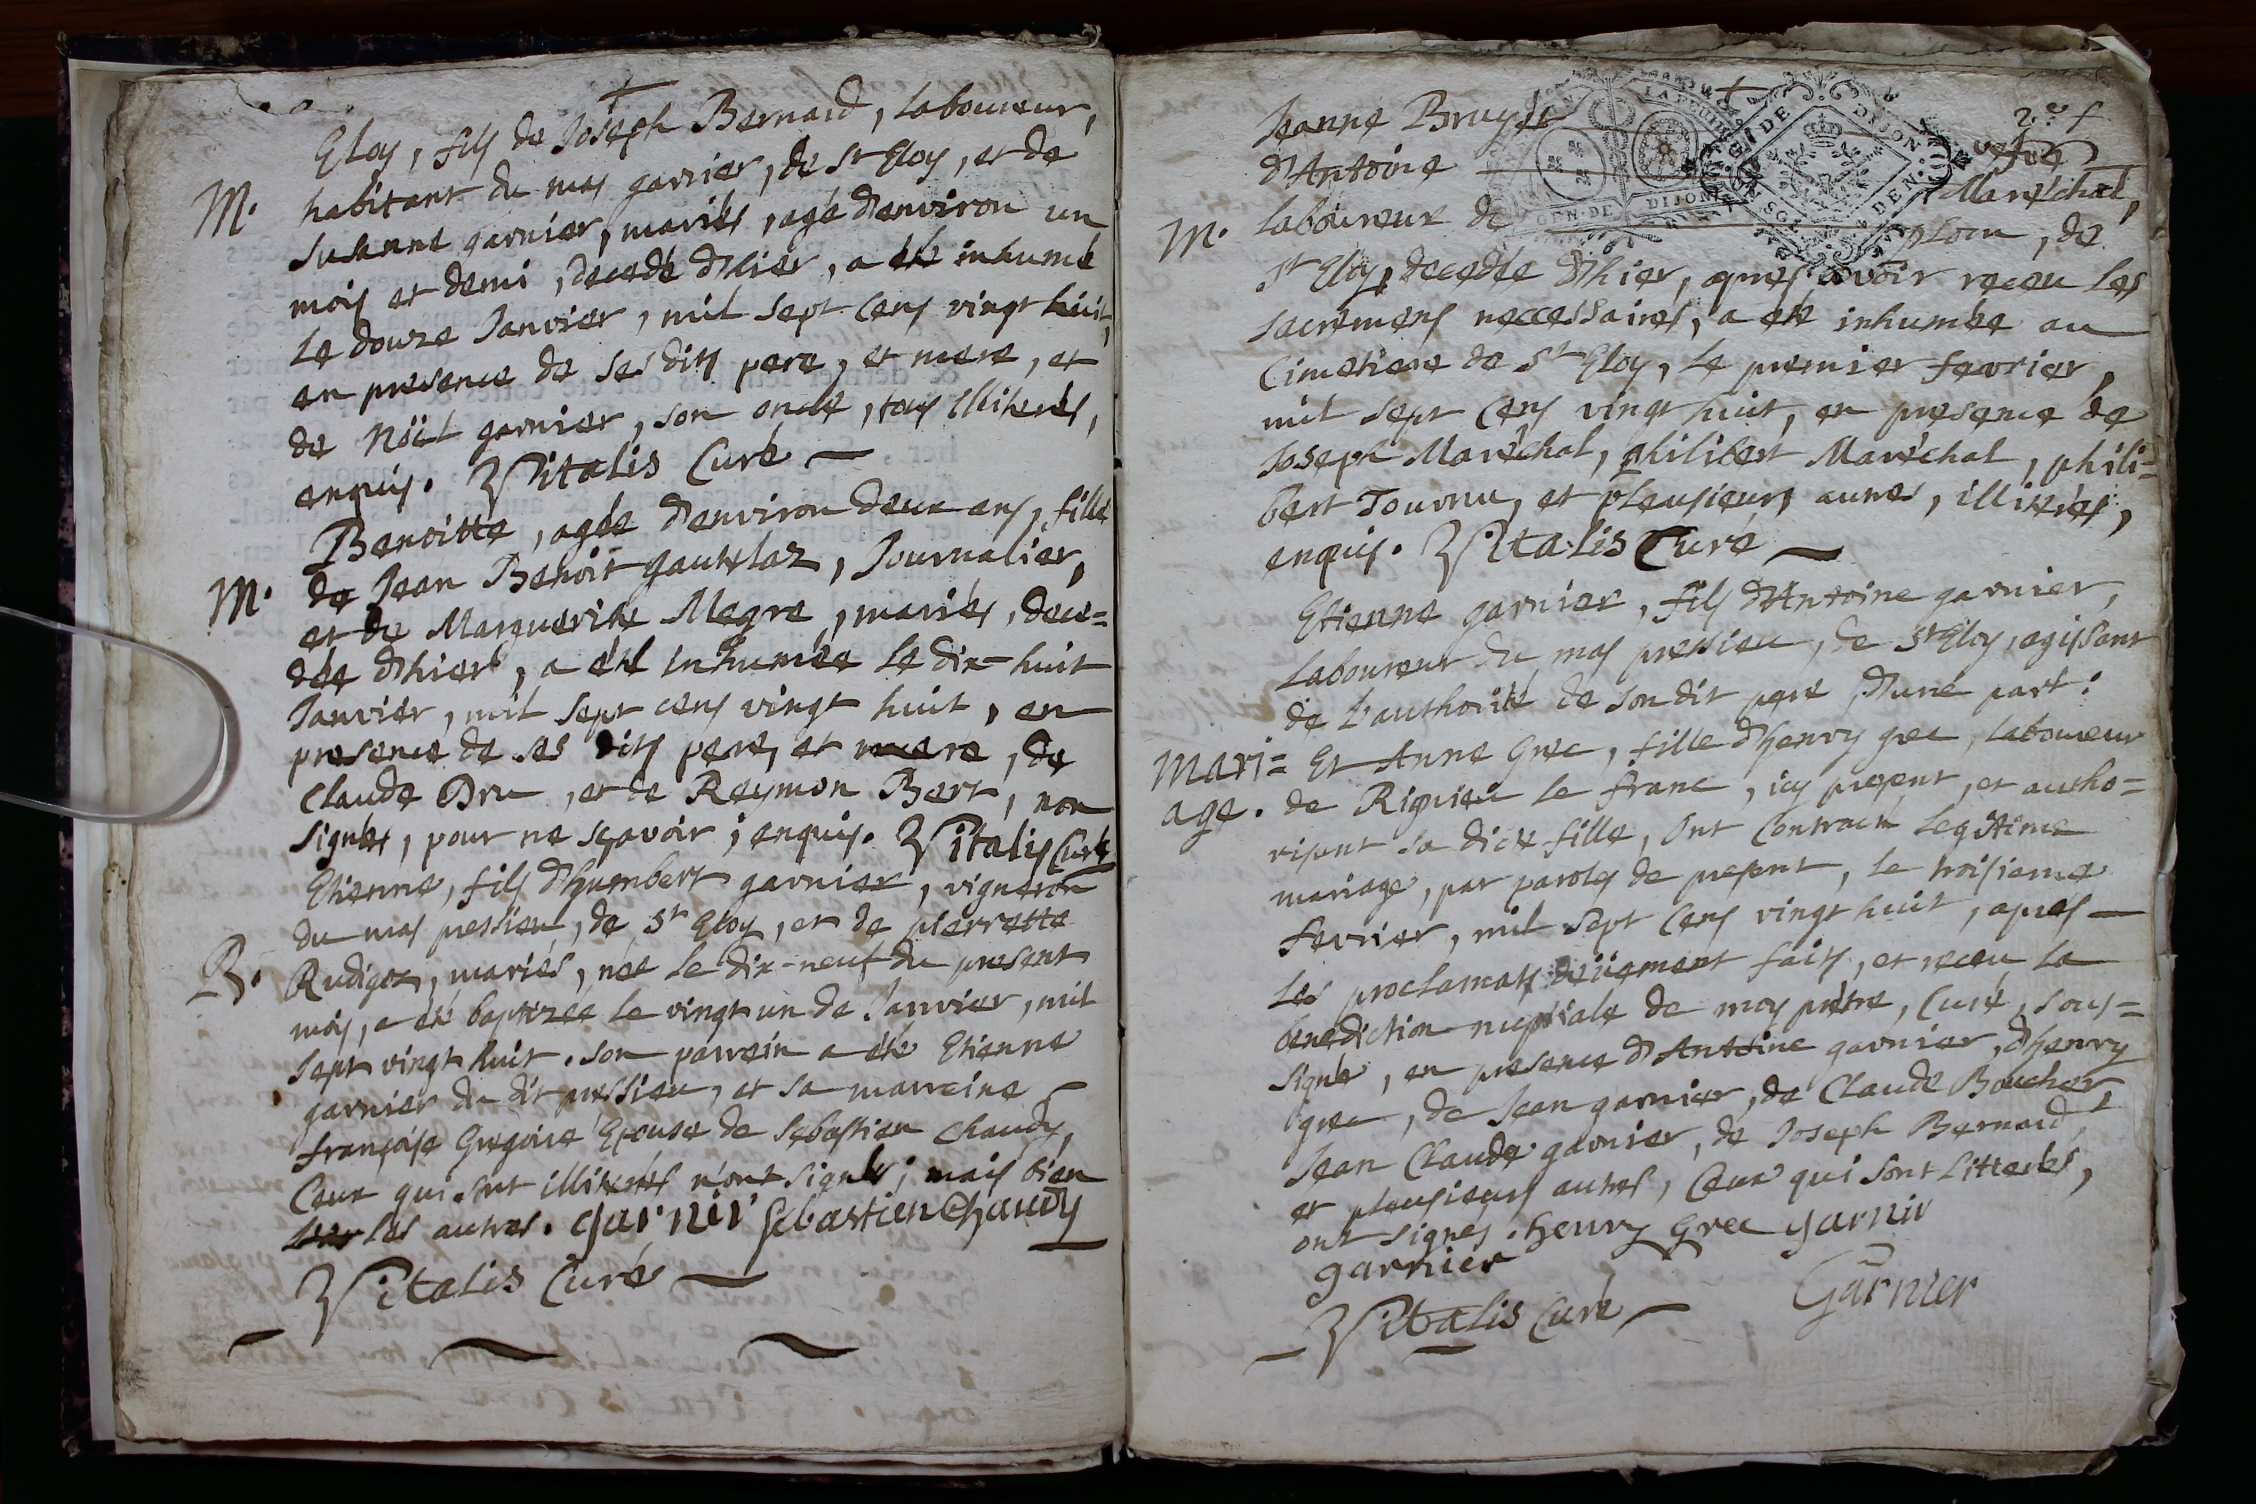 Eloy, fils de Joseph Bernard, laboureur,
M. habitant du mas garnier, de St Eloy, et de
Susanne garnier, mariés, agé d'environ un
mois et demi, decedé d'hier, a eté inhumé
le douze Janvier, mil sept cens vingt huit,
en presence de ses dits pere, et mere, et
de Nöel garnier, son oncle, tous illiterés,
enquis. Vitalis Curé
Benoitte, agée d'environ deux ans, fille
M. de Jean Benoit gautelaz, Journalier,
et de Marguerite Megre, mariés, dece=
dée d'hier, a été inhumée le dix-huit
Janvier, mil sept cens vingt huit, en
presence de ses dits pere, et mere, de
Claude Dru, et de Reymon Bert, non
signés, pour ne sçavoir, enquis. Vitalis Curé
Etienne, fils d'humbert garnier, vigneron
du mas pressieu, de St Eloy, et de pierrette
B. Rudigoz, mariés, née le dix-neuf du present
mois, a eté baptizée le vingt un de Janvier, mil
sept vingt huit. son parrein a été Etienne
garnier du dit pressieu, et sa marreine
françoise Gregoire Epouse de Sebastien Chaudy,
Ceux qui sont illiterés n'ont signés; mais bien
les autres. garnir Sebastien Chaudy
Vitalis Curé
2.e f
Jeanne Bruyere vefve
d'Antoine Maréchal,
M. laboureur de plom, de
St Eloy, decedée d'hier, apres avoir receu les
sacremens neccessaires, a eté inhumée au
Cimetiere de St Eloy, le premier fevrier,
mil sept cens vingt huit, en presence de
Joseph Maréchal, philibert Maréchal, phili=
bert Tournu, et pleusieurs autres, illiterés,
enquis. Vitalis Curé
Etienne garnier, fils d'Antoine garnier,
laboureur du mas pressieu, de St Eloy, agissant
de l'authorité de son dit pere, d'une part:
Mari= Et Anne Grec, fille d'henry grec, laboureur
age. de Rignieu le franc, icy present, et autho=
risant sa dicte fille, Ont Contracté legitime
mariage, par paroles de present, le troisieme
fevrier, mil sept cens vingt huit, apres
les proclamats deüement faits, et receu la
benediction nuptiale de moy prêtre, Curé, sous=
signé, en presence d'Antoine garnier, d'henry
grec, de Jean garnier, de Claude Boucher
Jean Claude garnier, de Joseph Bernard,
et pleusieurs autres, Ceux qui sont litterés,
ont signes. henry Grec garnir
garnier Garnier
Vitalis Curé